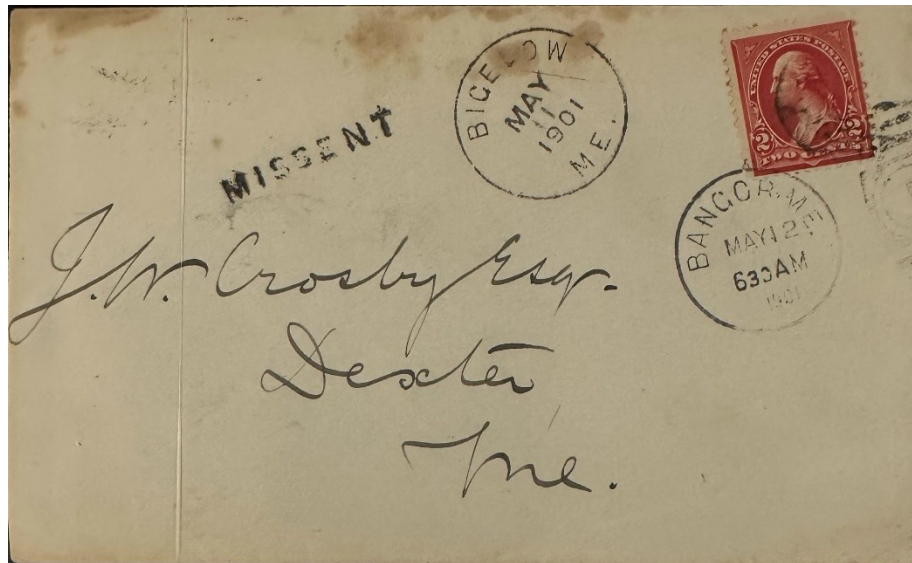 MISSENT
BIGELOW
MAY
11
1901
ME.
UNITED STATES POSTAGE
2 2
TWO CENTS
BANGOR, ME
MAY 12
630AM
1901
J. W. Crosby Esqr.
Dexter
Me.